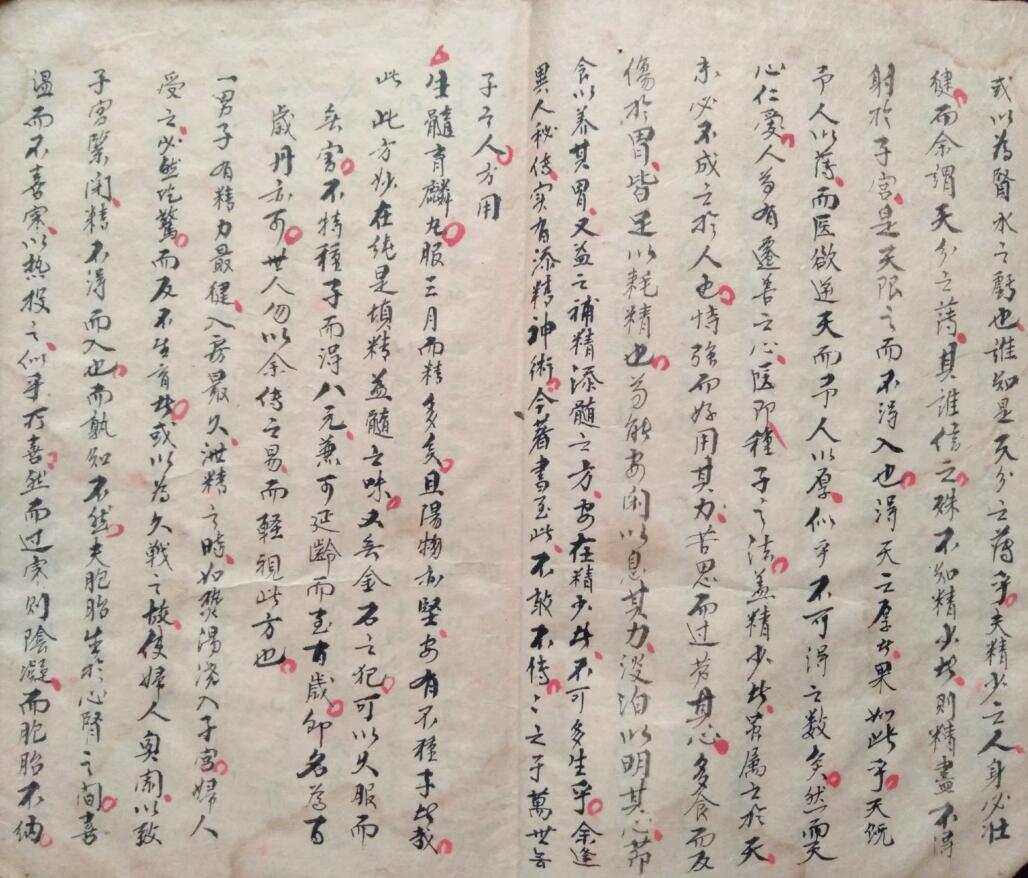 或以為腎水之虧也誰知是天分之薄乎夫精少之人身必壯
健而余謂天分之薄其誰信之殊不知精少者則精盡不得
射於子宮是天限之而不得入也得天之厚者果如此乎天既
予人以薄而医欲逆天而予人以厚似乎不可得之数矣然而天
心仁愛人苟有遷善之心医即種子之法盖精少者虽属之於天
未必不成之於人也恃強而好用其力苦思而过劳其心多食而反
傷於胃皆足以耗精也苟能安闲以息其力淡泊以明其心节
食以养其胃又益之補精添髓之方安在精少者不可多生乎余逢
異人秘传实有添精神術今著書至此不敢不传〻之子萬世無
子之人方用
生髓育麟丸服三月而精多矣且陽物亦堅安有不種子者哉
此方妙在純是填精益髓之味又無金石之犯可以久服而
無害不特種子而得八元兼可延齡而至百歲即名為百
歲丹亦可世人勿以余传之易而軽視此方也
一男子有精力最健入房最久泄精之時如熱湯浇入子宮婦人
受之必然吃驚而反不生育者或以為久戰之故使婦人興闹以致
子宮緊闭精不得而入也而孰知不然夫胞胎生於心腎之間喜
温而不喜寒以热投之似乎可喜然而过寒則陰凝而胞胎不納